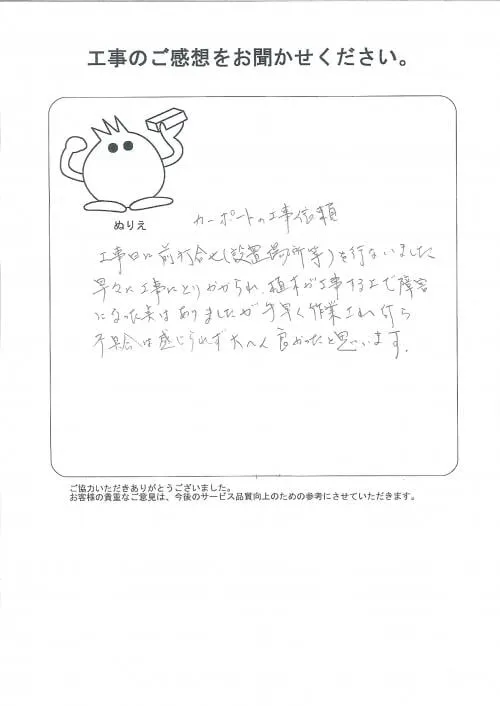 工事のご感想をお聞かせください。
ぬりえ
カーポートの工事依頼
工事日に前打合せ(設置場所等)を行ないました
早々に工事にとりかかられ、植木が工事する上で障害
になった点はありましたが手早く作業され
不具合は感じられず大へん良かったと思います。
ご協力いただきありがとうございました。
お客様の貴重なご意見は、今後のサービス品質向上のための参考にさせていただきます。